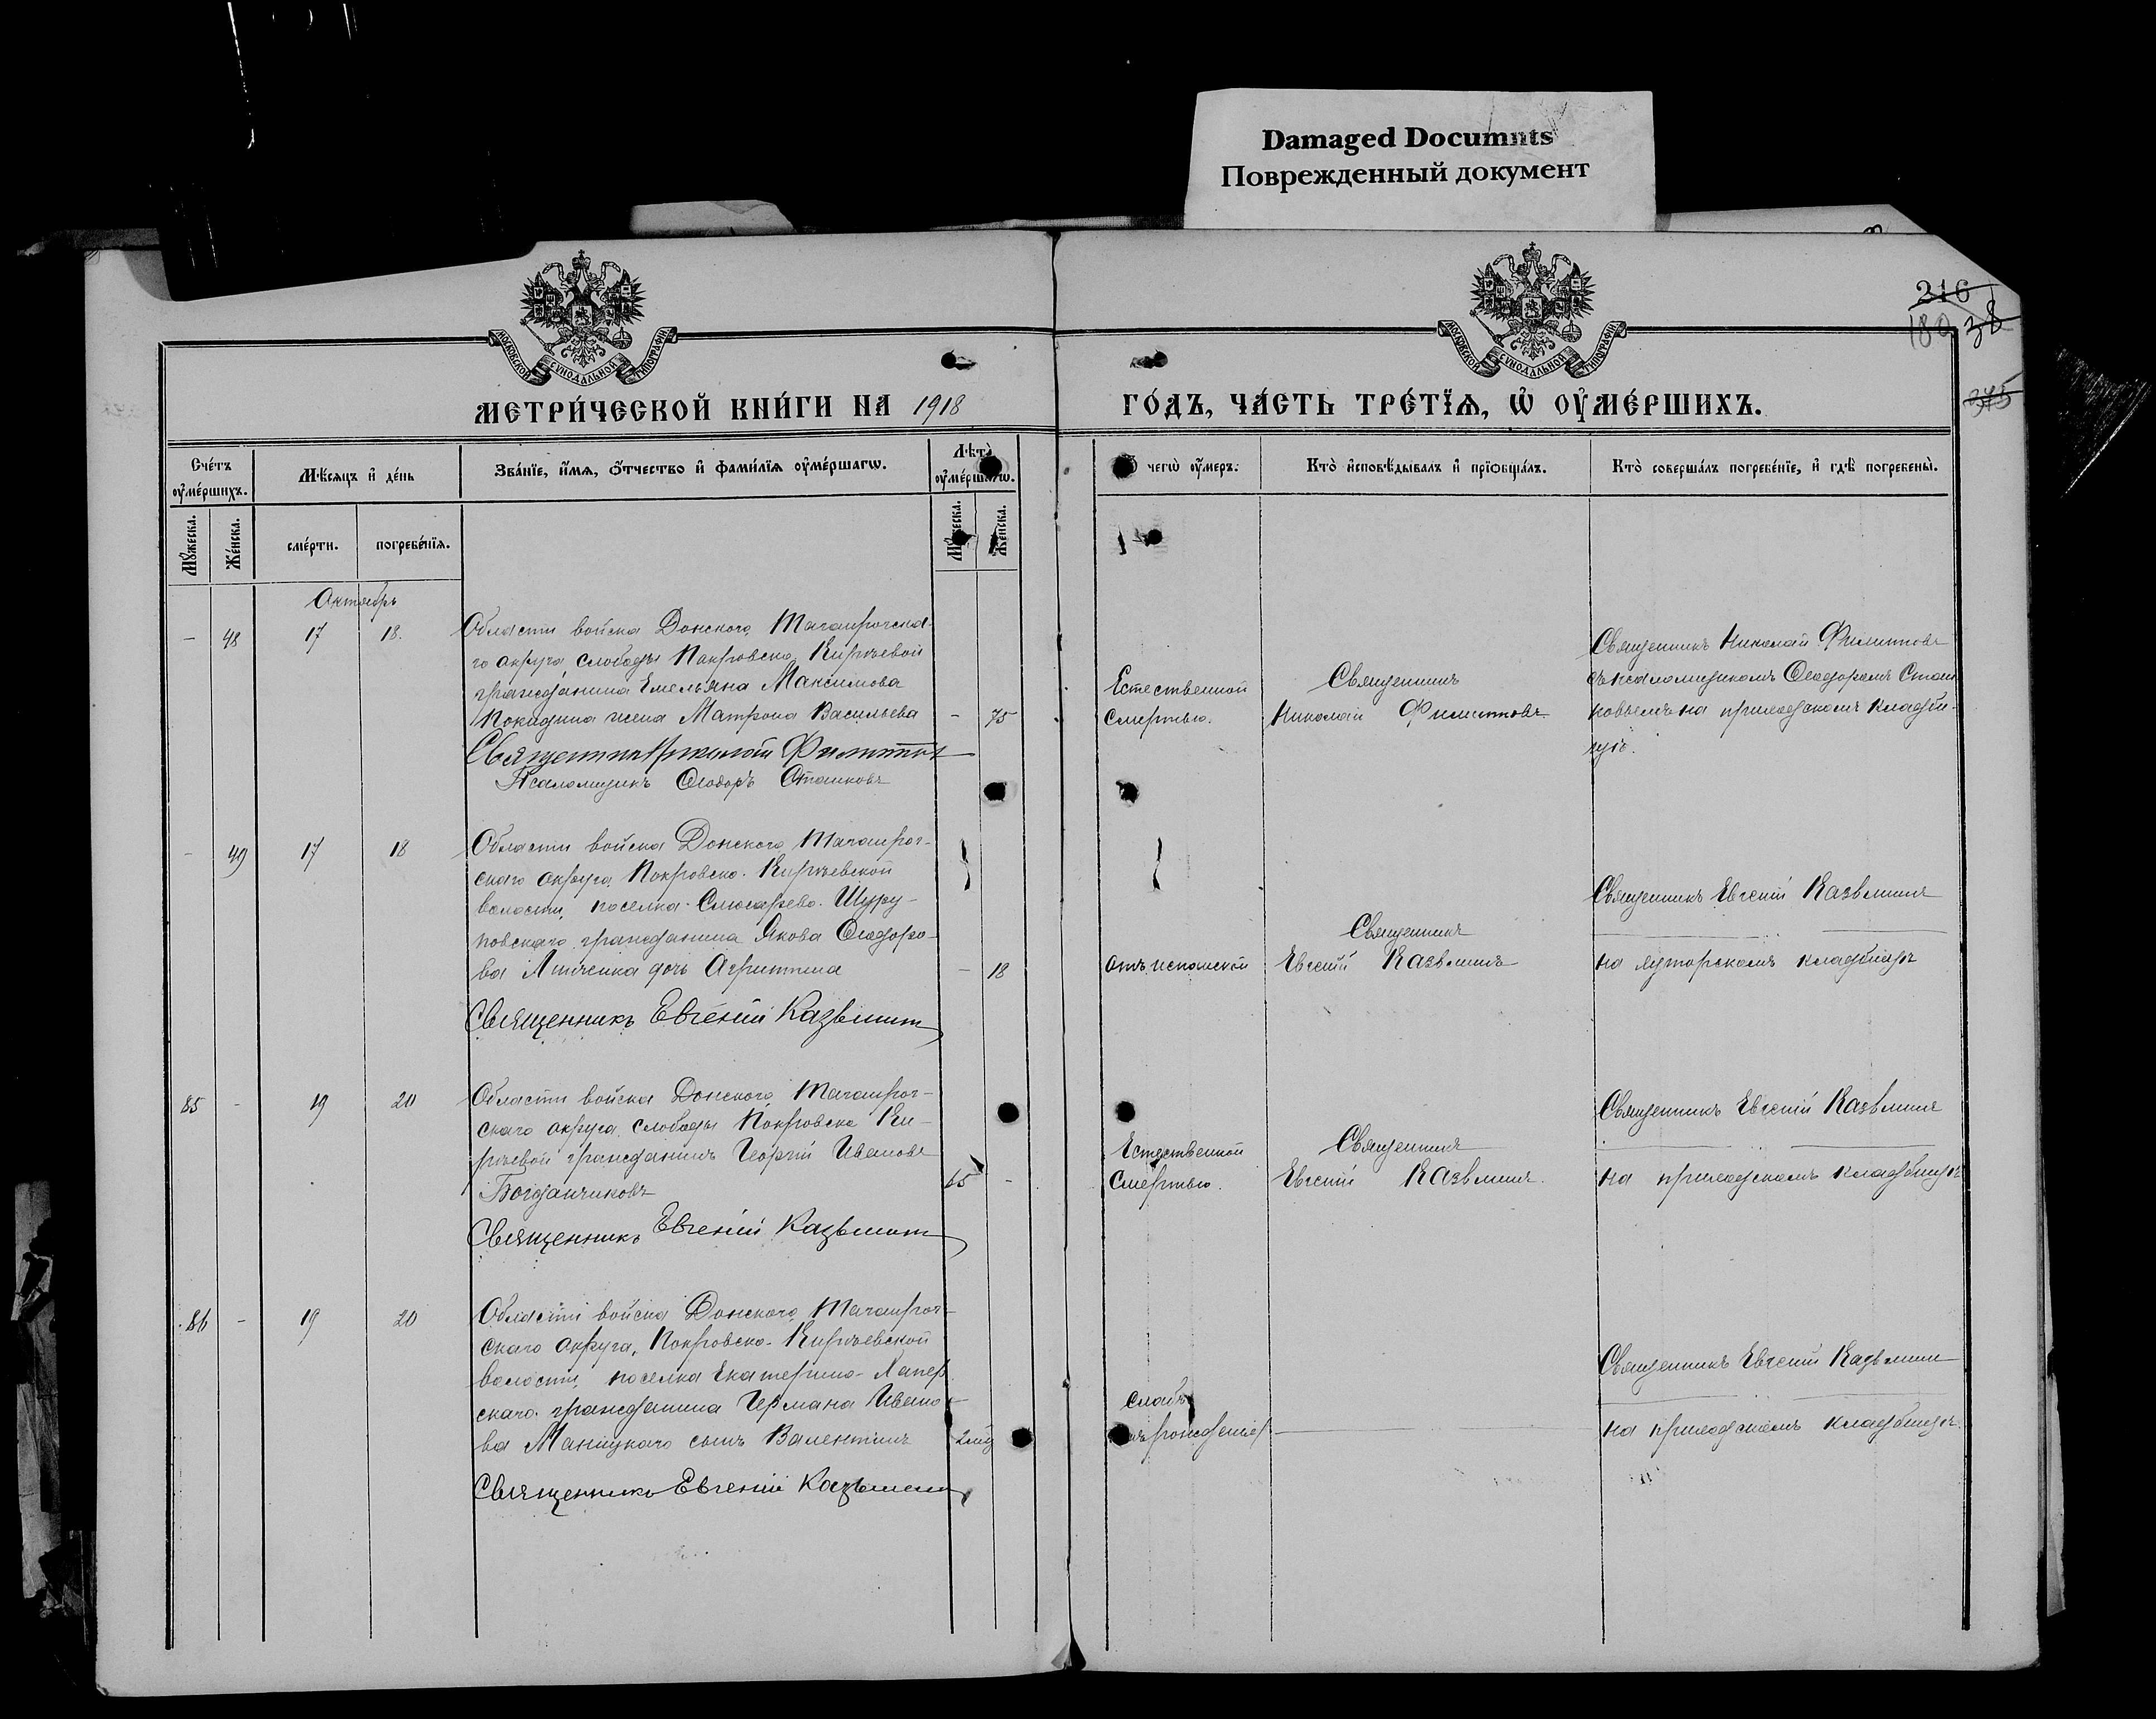 Damaged Documnts
Поврежденный документ
МОСКОВСКОЙ СУНОДАЛЬНОЙ ТИПОГРАФІИ
МОСКОВСКОЙ СУНОДАЛЬНОЙ ТИПОГРАФІИ
216
180 38
375
МЕТРИ́ЧЕСКОЙ КНИ́ГИ НА 1918 ГО́ДЪ, ЧА́СТЬ ТРЕ́ТЇѦ, Ѡ҆ ОУ҆МЕ́РШИХЪ.
Сче́тъ оу҆ме́ршихъ.
Мѣ́сѧцъ и҆ де́нь
Зва́нїе, и҆́мѧ, ѻ҆́тчество и҆ фами́лїѧ оу҆ме́ршагѡ.
Лѣ́та оу҆ме́ршагѡ.
чегѡ̀ оу҆́меръ.
Кто̀ и҆сповѣ́дывалъ и҆ прїѡбща́лъ.
Кто̀ соверша́лъ погребе́нїе, и҆ гдѣ̀ погребены̀.
Мꙋ́жеска.
Же́нска.
сме́рти.
погребе́нїѧ.
Мꙋ́жеска.
Же́нска.
Октябрь
- 48 17 18.
Области войска Донского, Таганрогска-
го округа, слободы Покровско-Киреевой
гражданина Емельяна Максимова
Покидина жена Матрона Васильева - 75
Священник Николай Филиппов
Псаломщикъ Ѳеодоръ Сташковъ
Естественной
смертью.
Священникъ
Николай Филипповъ
Священникъ Николай Филипповъ
съ псаломщикомъ Ѳеодоромъ Сташ
ковымъ на приходскомъ кладби-
щѣ.
- 49 17 18
Области войска Донского, Таганрог-
скаго округа, Покровско-Киреевской
волости, поселка Слюсарево-
гражданина Якова Ѳеодоро-
ва дочь Агриппина - 18
Священникъ Евгеній Казьмин
отъ испанской
Священникъ
Евгеній Казьминъ
Священникъ Евгеній Казьминъ
на хуторскомъ кладбищѣ
85 - 19 20
Области войска Донского, Таганрог-
скаго округа, слободы Покровско-Ки-
реевой гражданинъ Георгій Ивановъ
Богданчиковъ 65 -
Священникъ Евгеній Казьмин
Естественной
смертью.
Священникъ
Евгеній Казьминъ.
Священникъ Евгеній Казьминъ
на приходскомъ кладбищѣ
86 - 19 20
Области войска Донского, Таганрог-
скаго округа, Покровско-Киреевской
волости, поселка Екатерино-Хапер
скаго гражданина Германа Ивано-
ва Маницкаго сынъ Валентинъ
Священникъ Евгеній Казьмин
слабъ
рожденіе
Священникъ Евгеній Казьмин
на приходскомъ кладбищѣ.